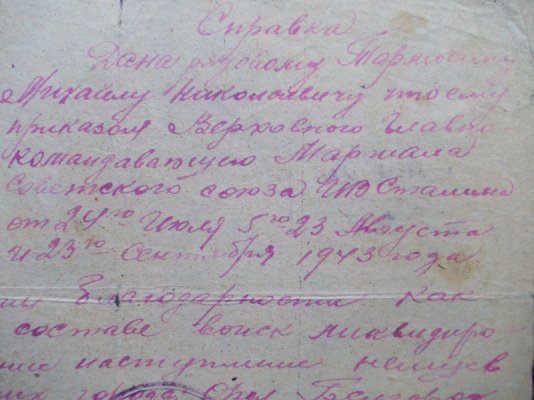 Справка
Дана рядовому Тормосину
Михаилу Николаевичу
приказом Верховного Главно
командавающего Маршала
Советского союза Сталина
от 24го Июля 5го 23 Августа
и 23го Сентября 1943 года
Благодарности как
составе войск ликвидиро
наступление немцев
города Орел Белгород